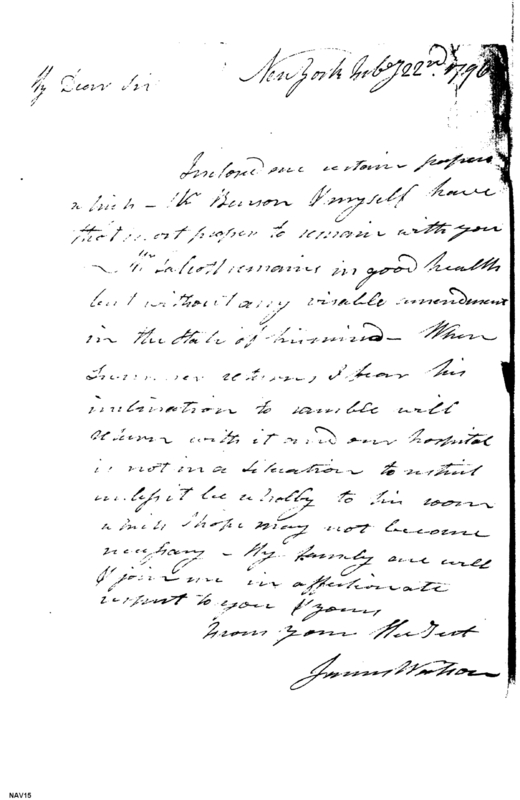 New York Feby 22nd. 1796
My Dear Sir
Inclosed are certain papers
which – Mr Benson & myself have
thot most proper to remain with you
– Mr Talcott remains in good health
but without any visable amendment
in the state of his mind – When
Summer returns I fear his
inclination to ramble will
return with it and our hospital
is not in a situation to restrict
unless it be wholly to his room
which I hope may not become
necessary – My family are well
& join me in affectionate
respect to you & yours
from your
James Watson
NAV15